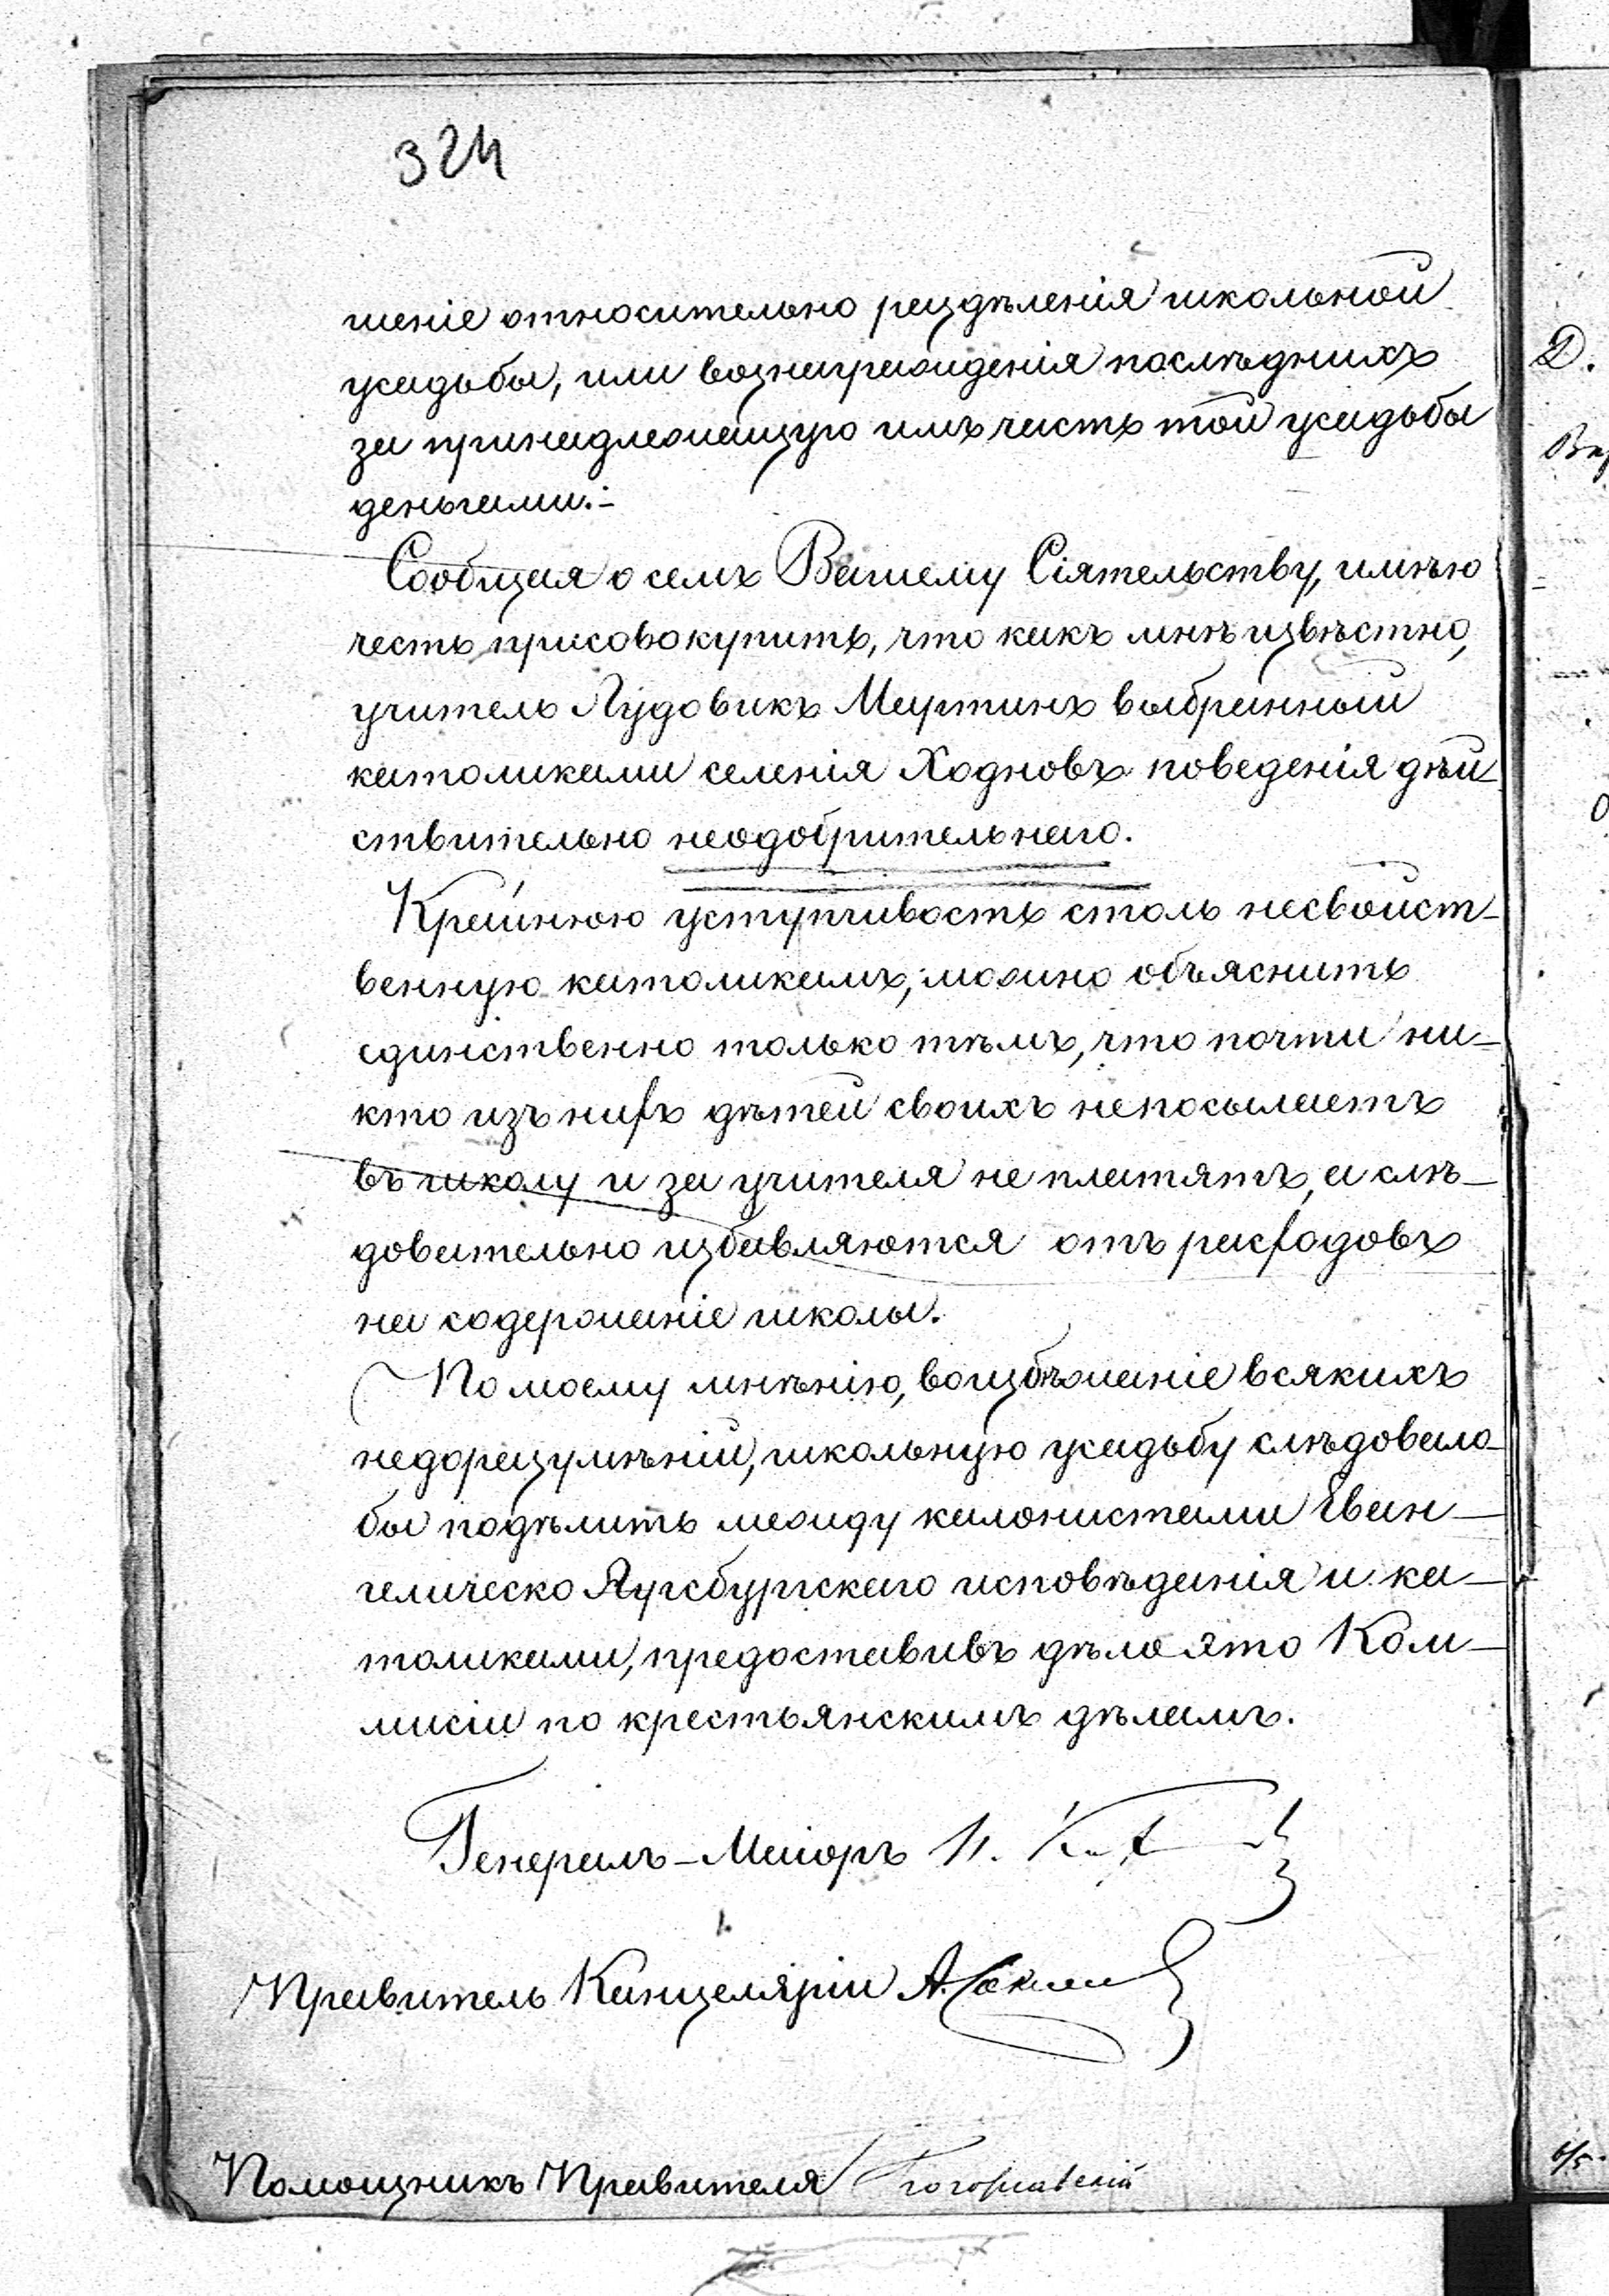 324
шеніе относительно раздѣленія школьной
усадьбы, или вознагражденія послѣднихъ
за принадлежащую имъ часть той усадьбы
деньгами.-
Сообщая о семъ Вашему Сіятельству, имѣю
честь присовокупить, что какъ мнѣ извѣстно,
учитель Лудовикъ Мартинъ выбранный
католиками селенія Ходновъ поведенія дѣй-
ствительно неодобрительнаго.
Крайнюю уступчивость столь несвойст-
венную католикамъ, можно объяснить
единственно только тѣмъ, что почти ни-
кто изъ нихъ дѣтей своихъ непосылаетъ
въ школу и за учителя не платятъ, а слѣ-
довательно избавляются отъ расходовъ
на содержаніе школы.
По моему мнѣнію, воизбѣжаніе всякихъ
недоразумѣній, школьную усадьбу слѣдовало-
бы подѣлить между калонистами Еван-
гелическо Аугсбургскаго исповѣданія и ка-
толиками, предоставивъ дѣло это Ком-
мисіи по крестьянскимъ дѣламъ.
Генералъ-Маіоръ
Правитель Канцеляріи А.
Помощникъ Правителя
Д.